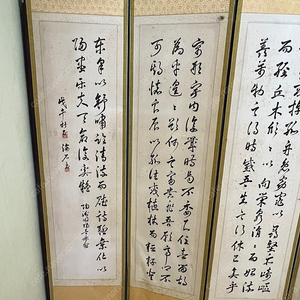 以尋壑亦崎嶇
而經丘木欣欣以向榮泉涓涓
善萬物之得時感吾生之行休已矣乎
寓形宇內復幾時曷不委心任去留胡
為乎遑遑欲何之富貴非吾願帝鄉不
可期懷良辰以孤往或植杖而耘耔登
東皋以舒嘯臨清流而賦詩聊乘化以
歸盡樂夫天命復奚疑
戊午秋